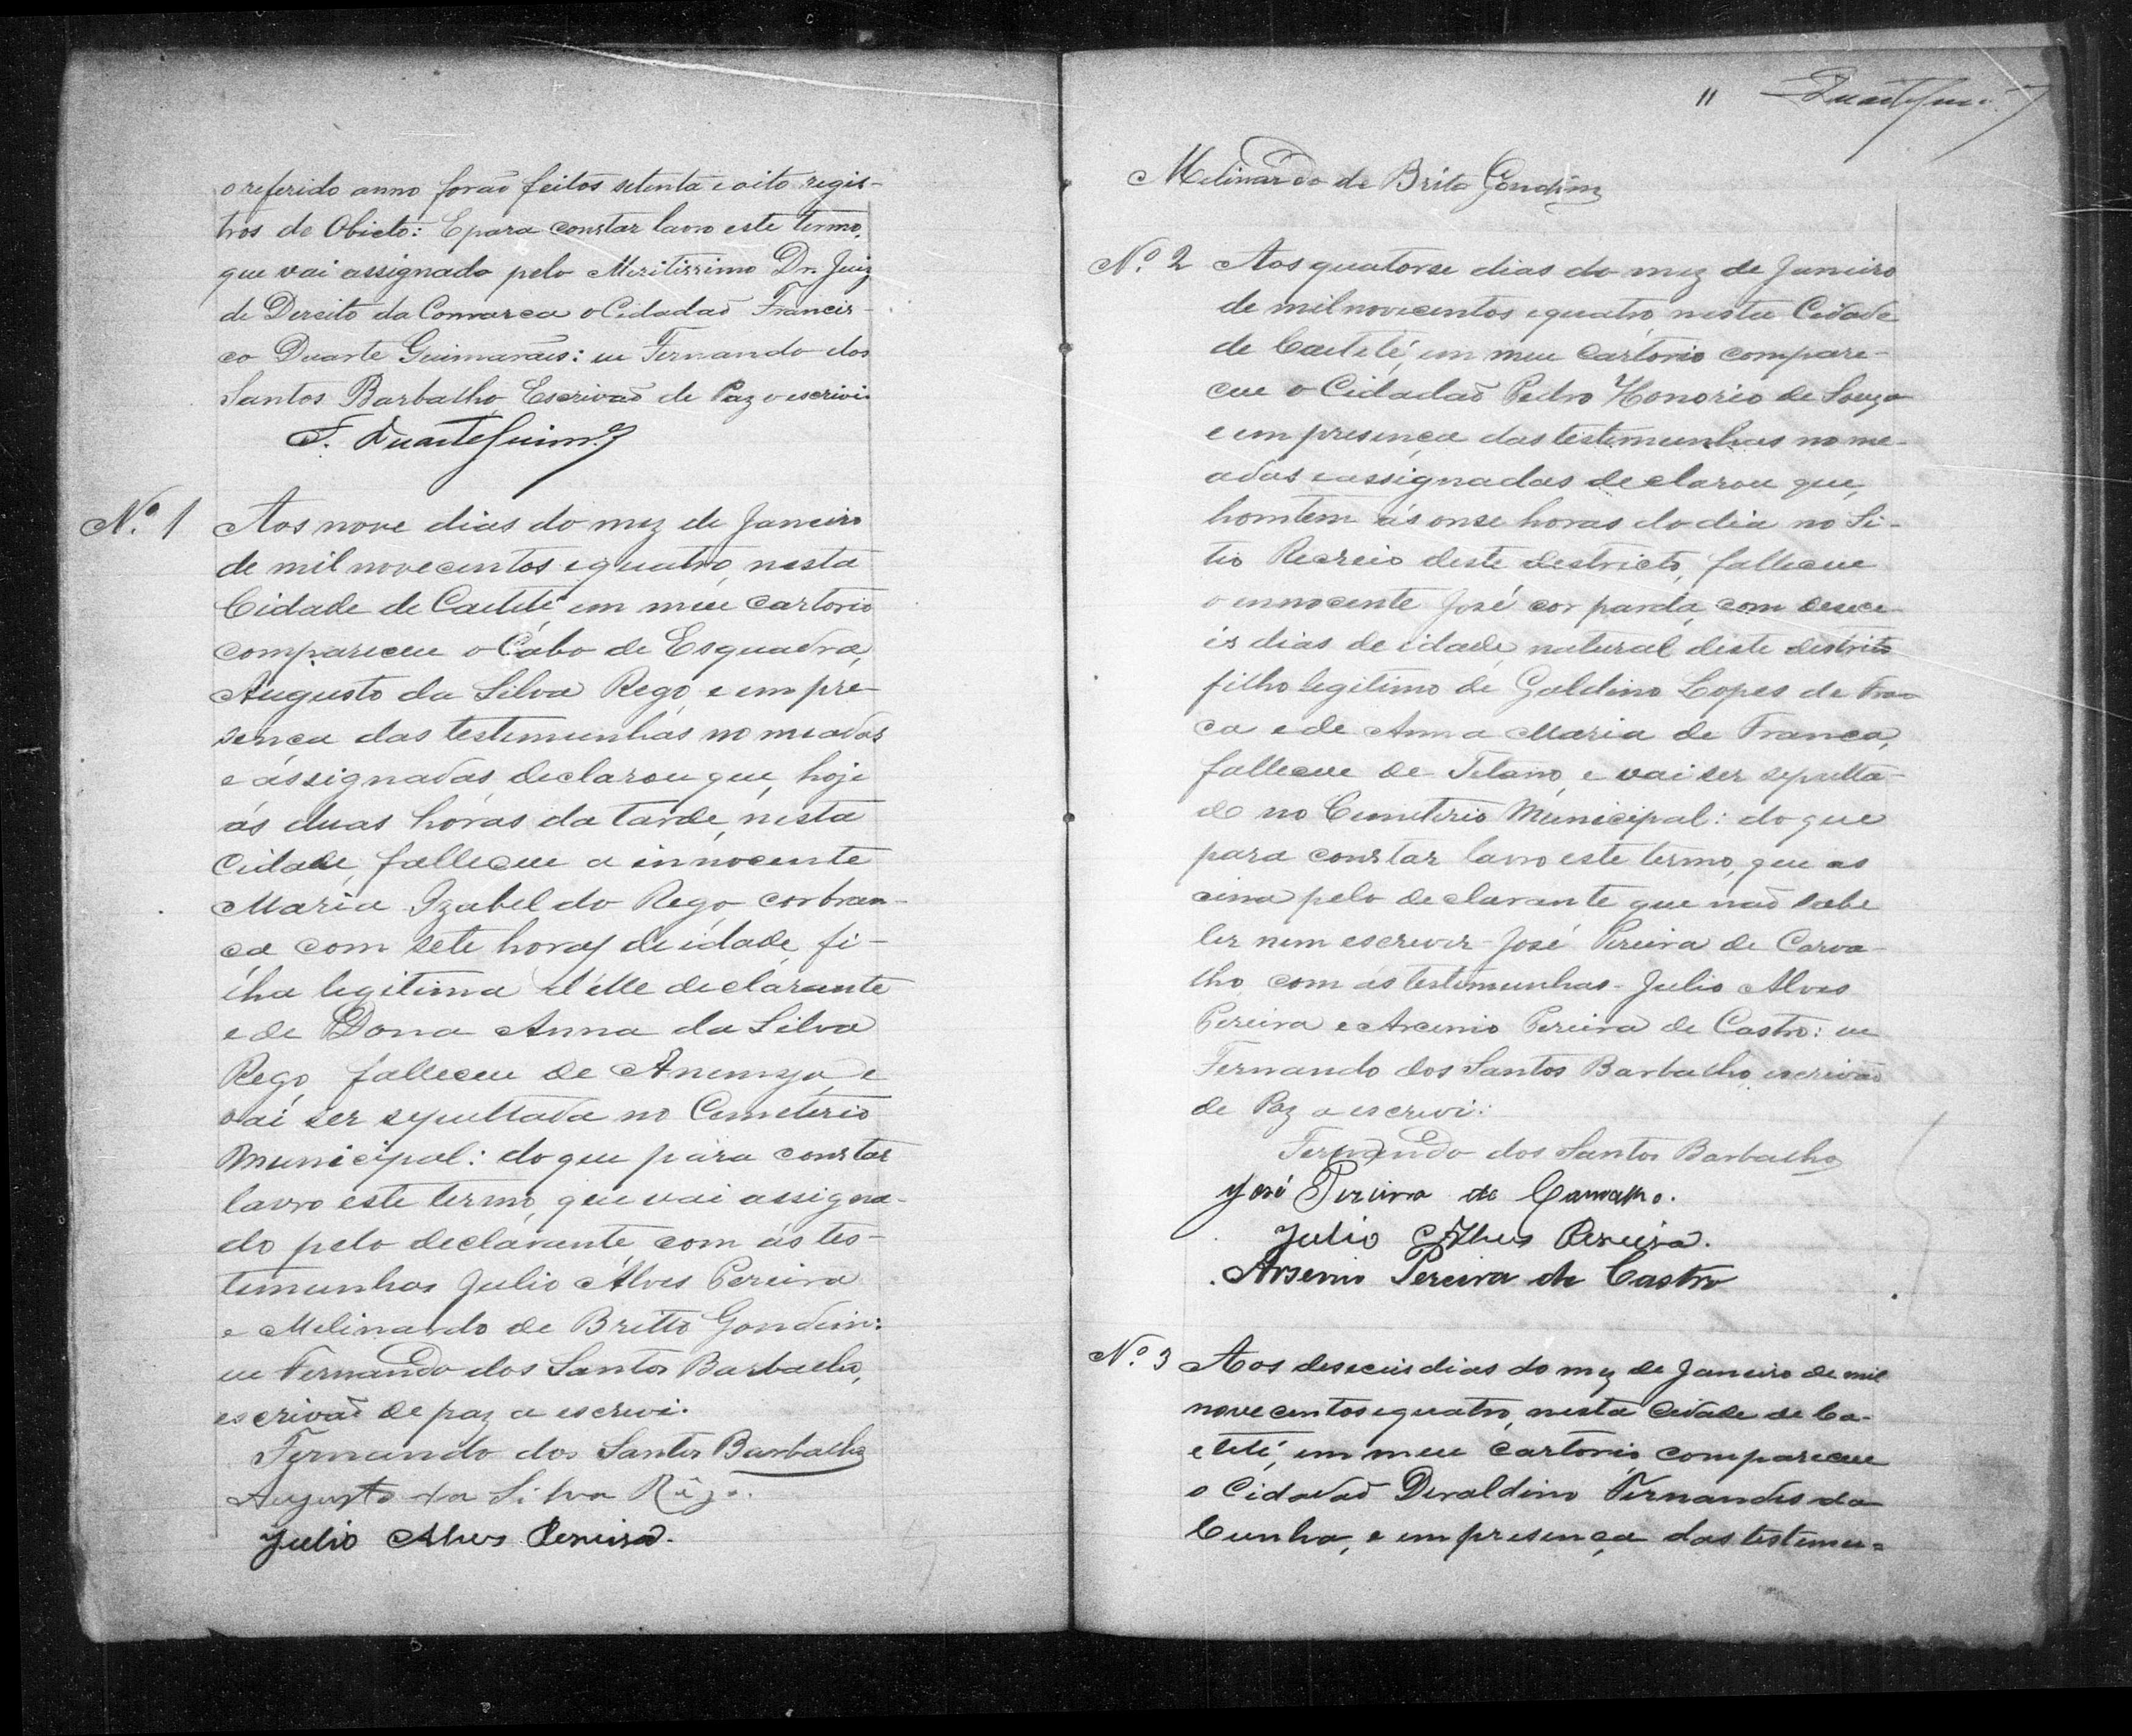 o referido anno forão feitos setenta e oito regis-
tros de Obicto: E para constar lavro este termo,
que vai assignado pelo Meritissimo Dr. Juiz
de Dereito da Comarca o Cidadaõ Francis-
co Duarte Guimarães: eu Fernando dos
Santos Barbalho Escrivaõ de Paz o escrivi.
F. Duarte Guim.es
Nº 1 Aos nove dias do mez de Janeiro
de mil novecentos e quatro, nesta
Cidade de Caetité em meu cartorio
compareceu o Cabo de Esquadra,
Augusto da Silva Rego, e em pre-
sença das testemunhas nomeadas
e assignadas, declarou que, hoje
ás duas horas da tarde, nesta
Cidade, falleceu a innocente
Maria Izabel do Rego, cor bran-
ca com sete horas de idade, fi-
lha legitima d'elle declarante
e de Dona Anna da Silva
Rego, falleceu de Anemya, e
vai ser sepultada no Cemeterio
Municipal: do que para constar
lavro este termo, que vai assigna-
do pelo declarante com ás tes-
temunhas Julio Alves Pereira
e Melinardo de Britto Gondim:
eu Fernando dos Santos Barbalho,
escrivaõ de paz a escrevi.
Fernando dos Santos Barbalho
Augusto da Silva Rêgo.
Julio Alves Pereira.
11 Duarte Guim.es
Melinardo de Brito Gondim
Nº 2 Aos quatorse dias do mez de Janeiro
de mil novecentos e quatro, nesta Cidade
de Caetité, em meu Cartorio compare-
ceu o Cidadaõ Pedro Honorio de Souza
e em presença das testemunhas nome-
adas e assignadas declarou que,
homtem ás onse horas do dia no Si-
tio Recreio deste destricto, falleceu
o innocente José cor parda, com desece-
is dias de idade, natural deste destrito
filho legitimo de Galdino Lopes de Fran
ca e de Anna Maria de Franca,
falleceu de Tetano, e vai ser sepulta-
do no Cemeterio Municipal: do que
para constar lavro este termo, que as
cina pelo declarante que naõ sabe
ler nem escrever José Pereira de Carva-
lho com ás testemunhas - Julio Alves
Pereira e Arcenio Pereira de Castro: eu
Fernando dos Santos Barbalho, escrivaõ
de Paz a escrevi:
Fernando dos Santos Barbalho
José Pereira de Carvalho.
Julio Alves Pereira.
Arsenio Pereira de Castro
Nº 3 Aos deseceis dias do mez de Janeiro de mil
nove centos e quatro, nesta Cidade de Ca-
etité, em meu Cartorio compareceu
o Cidadaõ Deraldino Fernandes da
Cunha, e em presença das testemu=